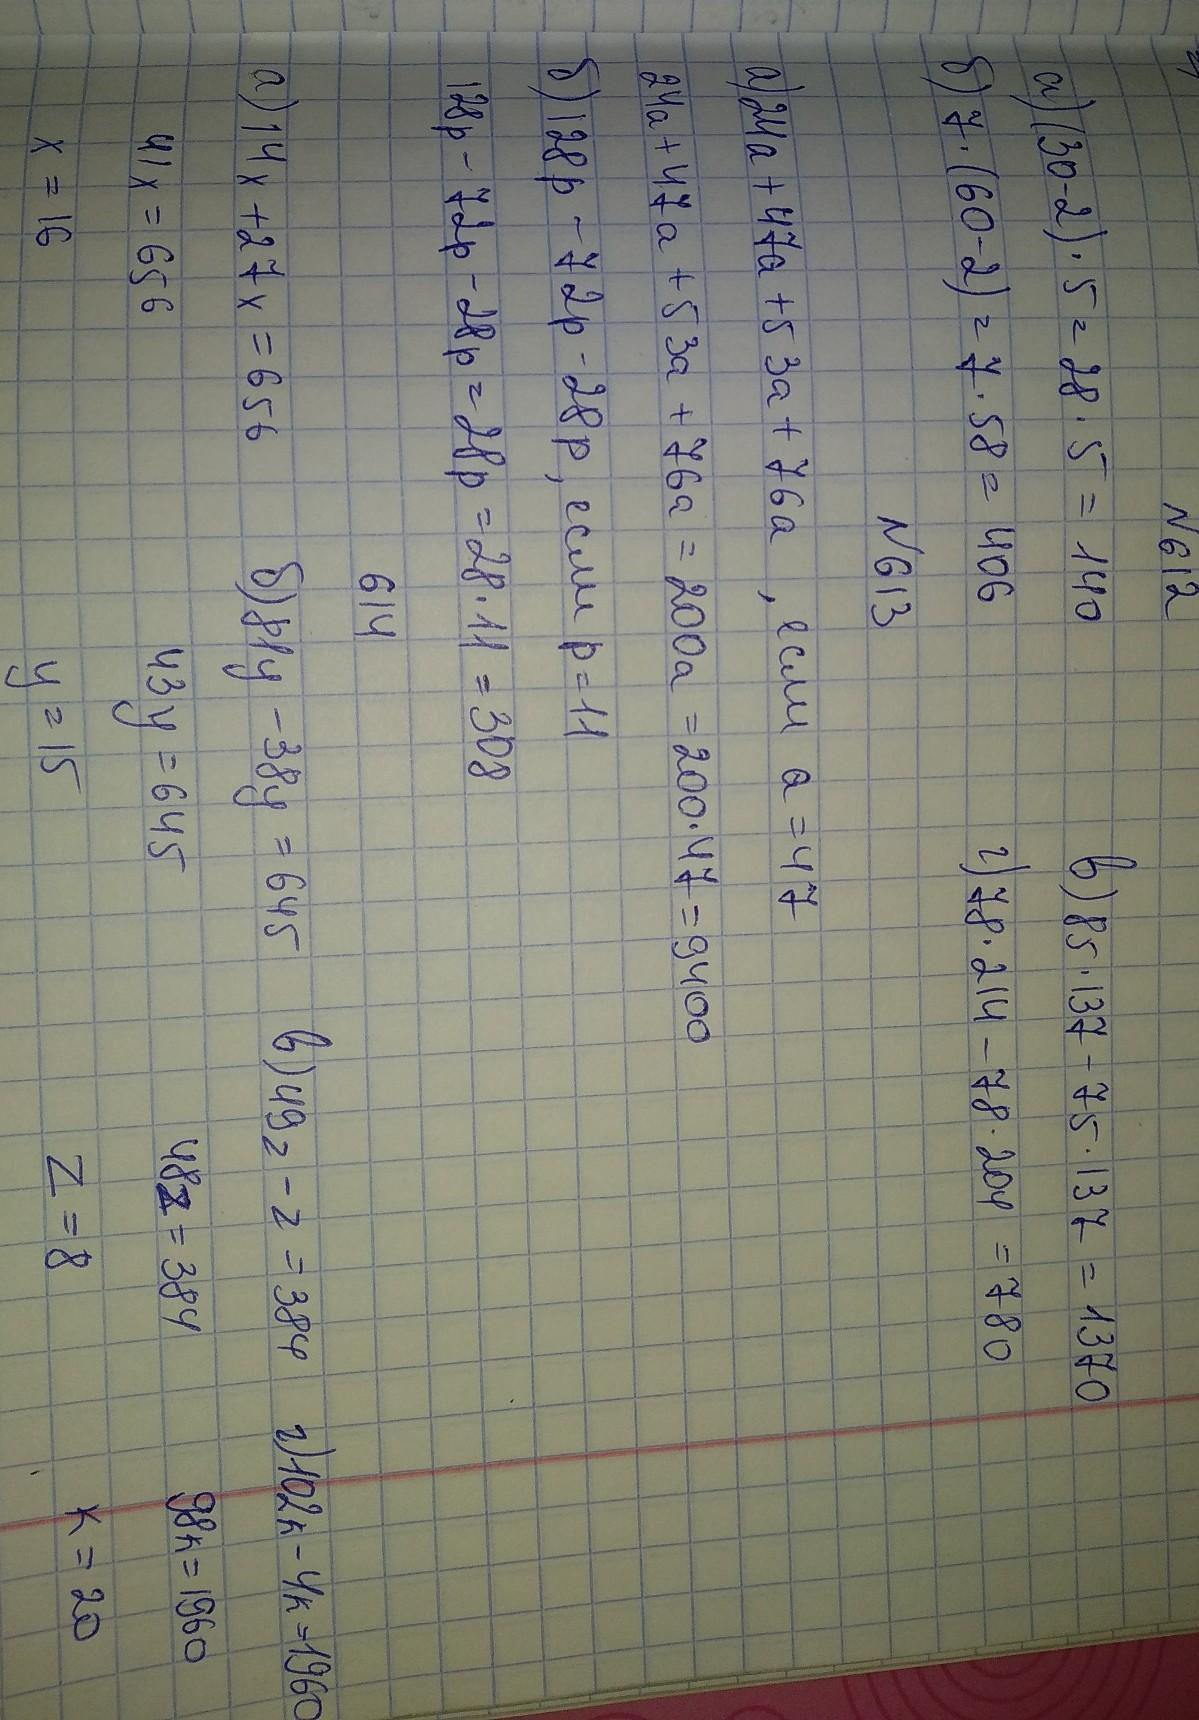 N612
а) (30-2)·5=28·5=140 в) 85·137-75·137=1370
б) 7·(60-2)=7·58=406 г) 78·214-78·204=780
N613
а) 24a+47a+53a+76a, если a=47
24a+47a+53a+76a=200a=200·47=9400
б) 128p-72p-28p, если p=11
128p-72p-28p=28p=28·11=308
614
а) 14x+27x=656 б) 81y-38y=645 в) 49z-z=384 г) 102k-4k=1960
41x=656 43y=645 48z=384 98k=1960
x=16 y=15 z=8 k=20